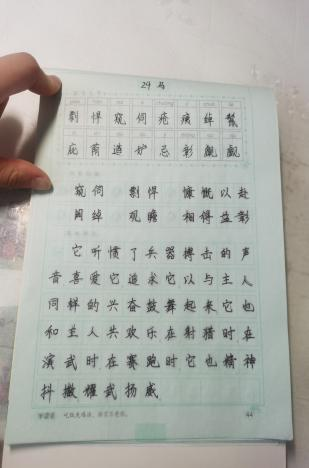 24 马
剽 悍 窥 伺 疮 痍 绰 鬃
庇 荫 造 妒 忌 彰 觑 觑
窥伺 剽悍 慷慨以赴
阔绰 观瞻 相得益彰
它听惯了兵器搏击的声
音喜爱它追求它以与主人
同样的兴奋鼓舞起来它也
和主人共欢乐在射猎时在
演武时在赛跑时它也精神
抖擞耀武扬威
44